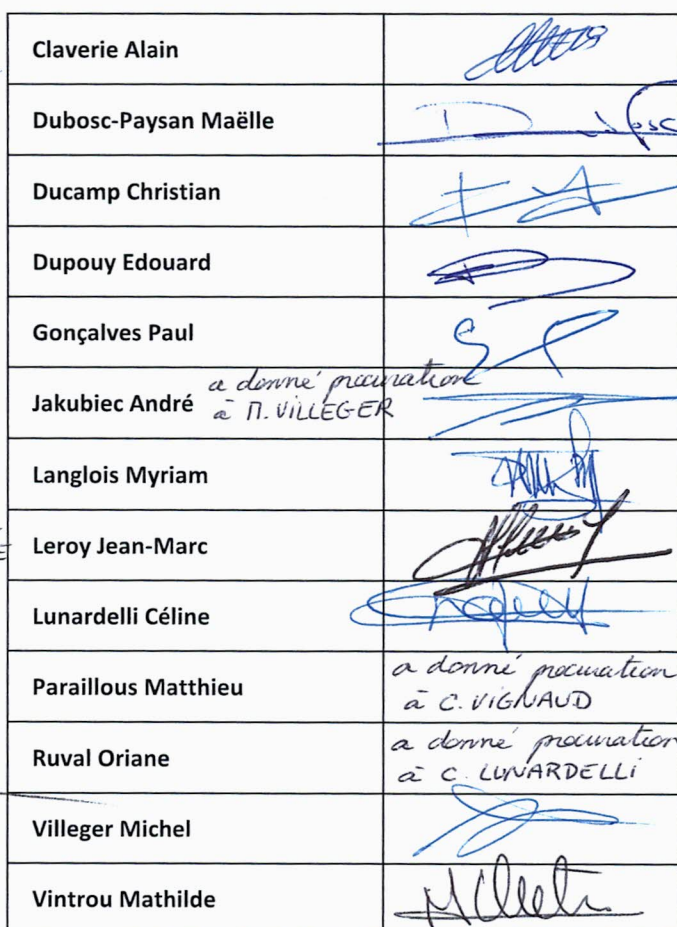 Claverie Alain
Dubosc-Paysan Maëlle
Ducamp Christian
Dupouy Edouard
Gonçalves Paul
Jakubiec André a donné procuration
à M. VILLEGER
Langlois Myriam
Leroy Jean-Marc
Lunardelli Céline
Paraillous Matthieu a donné procuration
à C. VIGNAUD
Ruval Oriane a donné procuration
à C. LUNARDELLI
Villeger Michel
Vintrou Mathilde